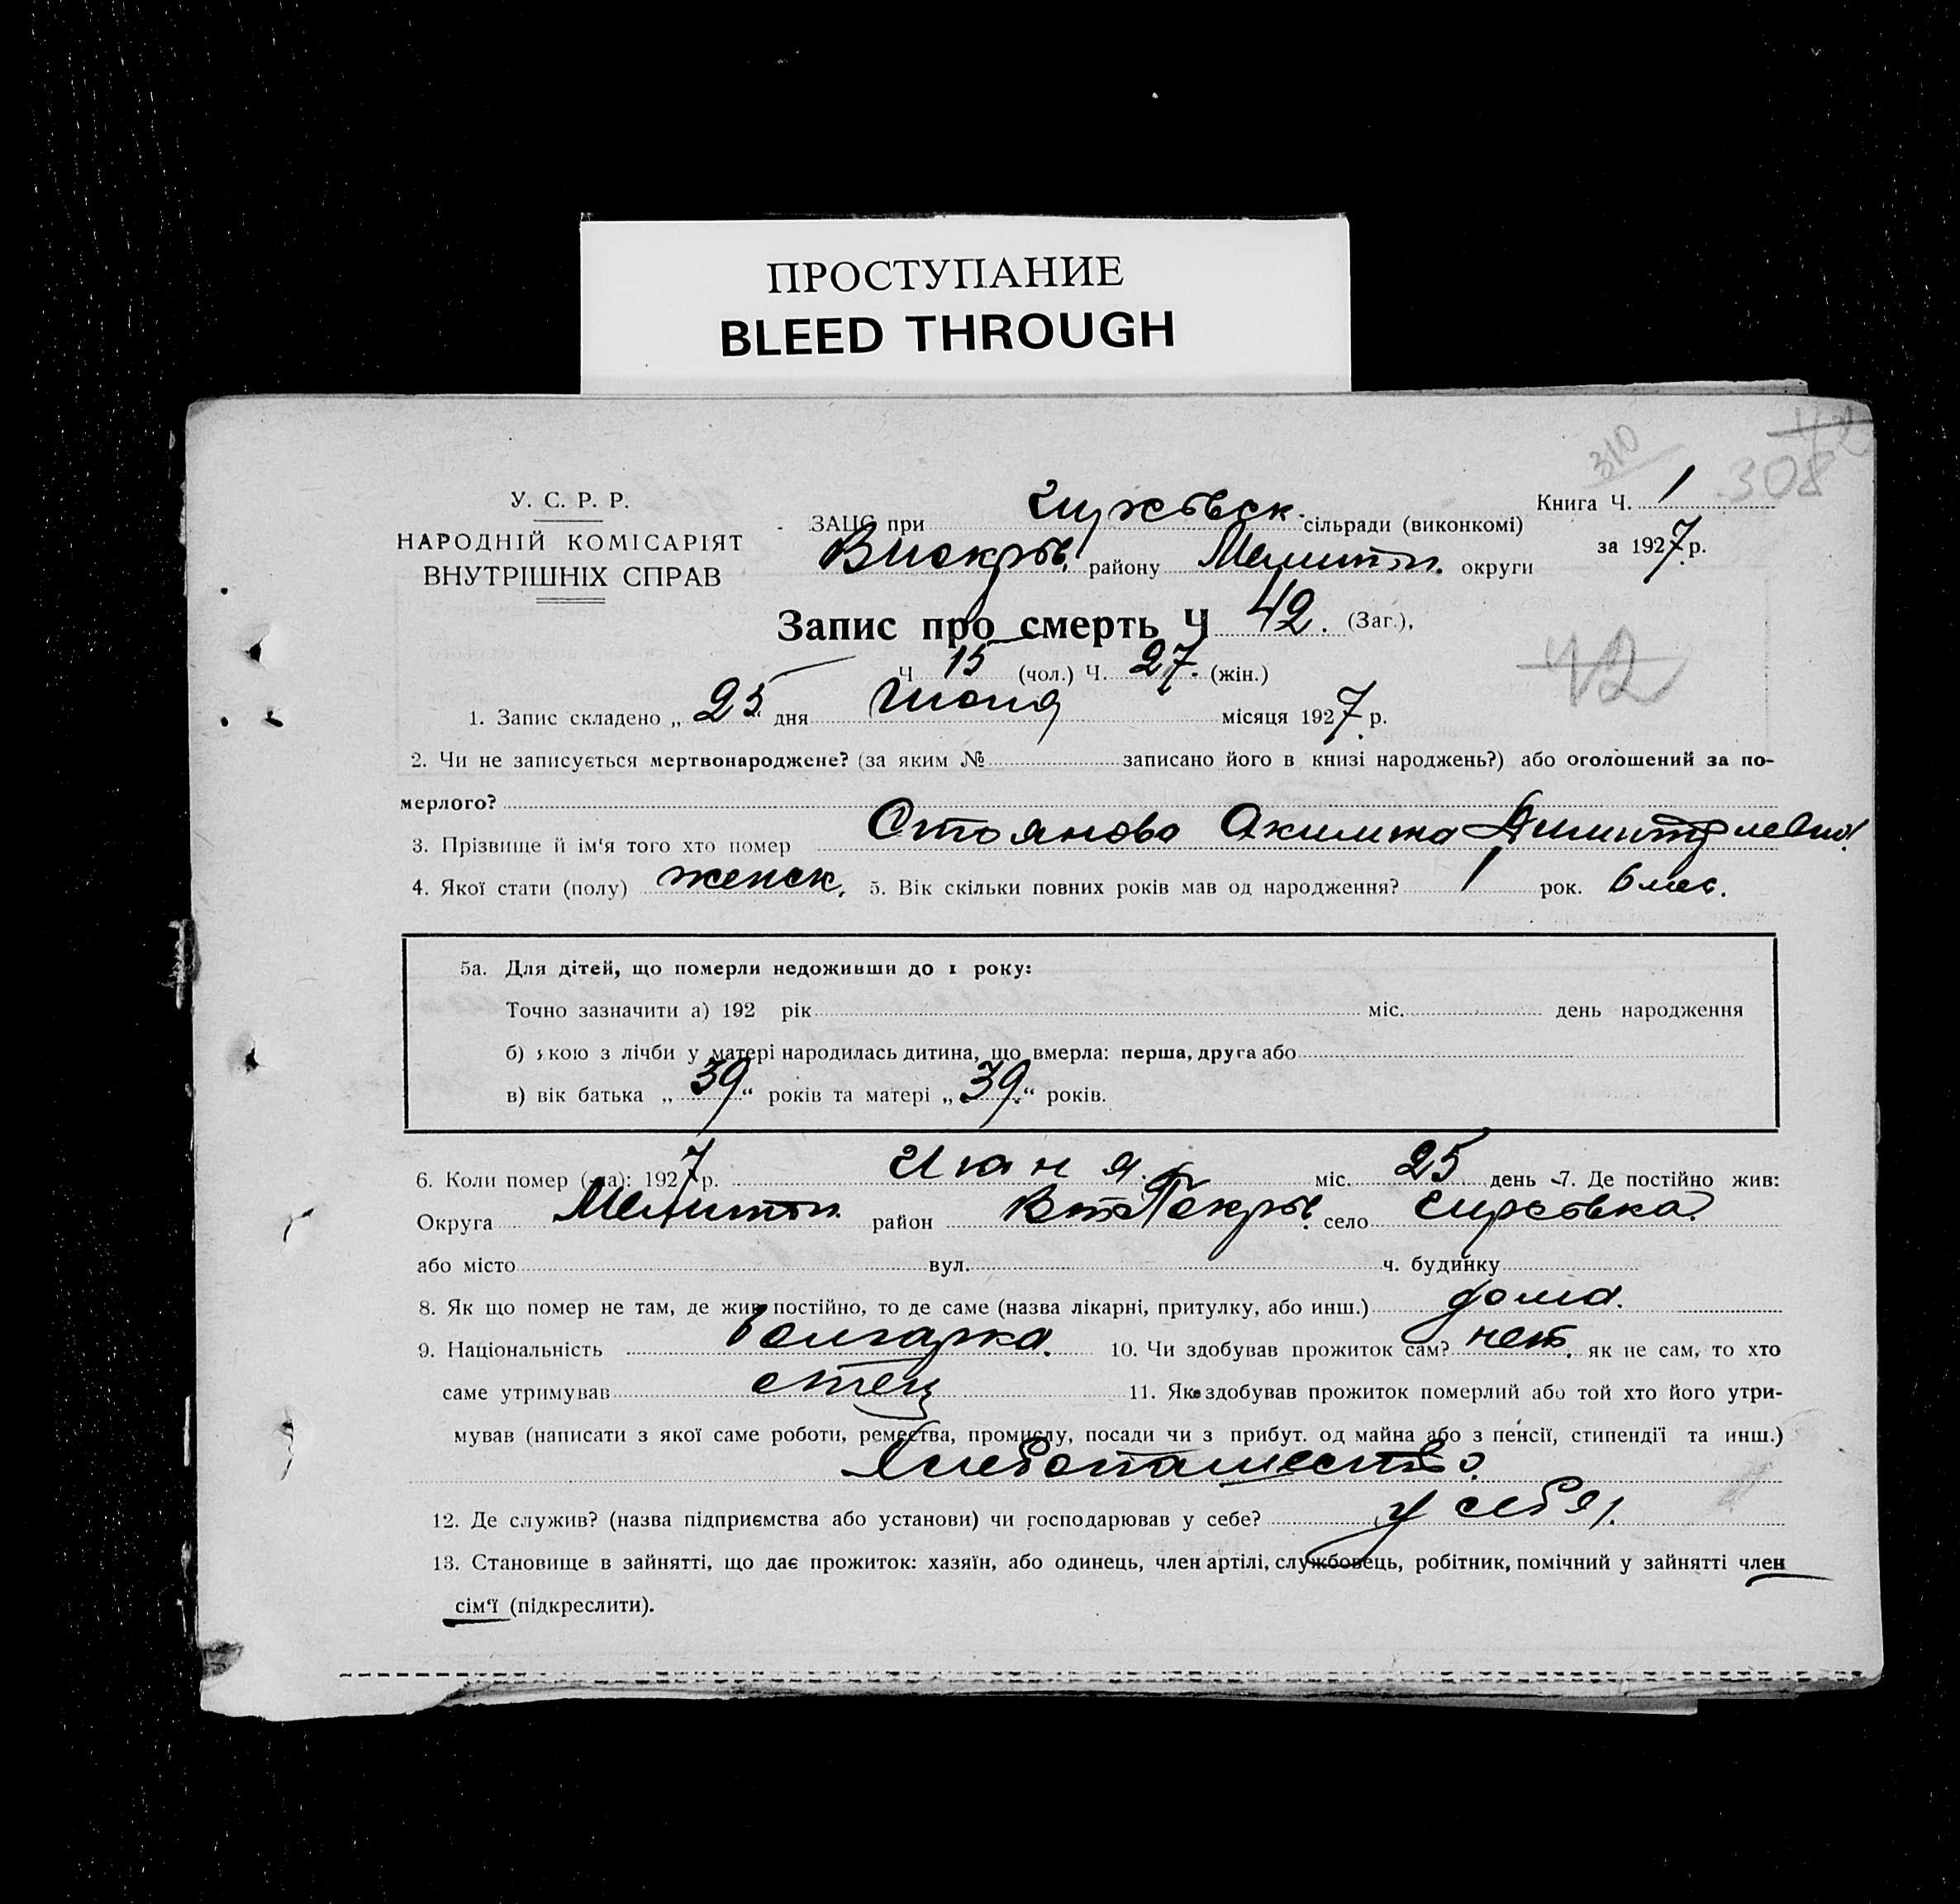 ПРОСТУПАНИЕ
BLEED THROUGH
42
310
308
У. С. Р. Р.
НАРОДНІЙ КОМІСАРІЯТ
ВНУТРІШНІХ СПРАВ
Книга Ч. 1
ЗАЦС при сільради (виконкомі)
за 1927 р.
району Мелитоп. округи
Запис про смерть Ч 42. (Заг.),
Ч 15 (чол.) Ч. 27. (жін.)
42
1. Запис складено „ 25 “ дня Июня місяця 1927 р.
2. Чи не записується мертвонароджене? (за яким № записано його в книзі народжень?) або оголошений за по-
мерлого?
3. Прізвище й ім'я того хто помер Стоянова Акилина Димитриевна
4. Якої стати (полу) женск. 5. Вік скільки повних років мав од народження? 1 рок. 6 мес.
5а. Для дітей, що померли недоживши до 1 року:
Точно зазначити а) 192 рік міс. день народження
б) якою з лічби у матері народилась дитина, що вмерла: перша, друга або
в) вік батька „ 39 “ років та матері „ 39. “ років.
6. Коли помер (-ла): 1927 р. Июня. міс. 25 день 7. Де постійно жив:
Округа Мелитоп. район село
або місто вул. ч. будинку
8. Як що помер не там, де жив постійно, то де саме (назва лікарні, притулку, або инш.) дома.
9. Національність болгарка. 10. Чи здобував прожиток сам? нет. як не сам, то хто
саме утримував отец 11. Як здобував прожиток померлий або той хто його утри-
мував (написати з якої саме роботи, ремества, промислу, посади чи з прибут. од майна або з пенсії, стипендії та инш.)
Хлебопашество.
12. Де служив? (назва підприємства або установи) чи господарював у себе? у себя.
13. Становище в зайнятті, що дає прожиток: хазяїн, або одинець, член артілі, службовець, робітник, помічний у зайнятті член
сім'ї (підкреслити).